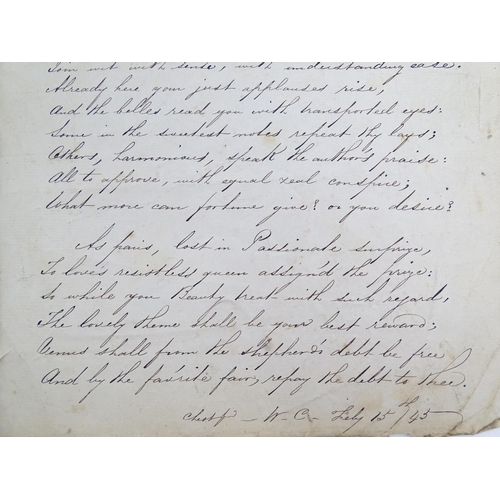 Join wit with sense, with understanding ease.
Already here your just applauses rise,
And the belles read you with transported eyes:
Some in the sweetest notes repeat thy lays;
Others, harmonious, speak the author's praise:
All to approve, with equal zeal conspire;
What more can fortune give? or you desire?
As paris, lost in Passionate surprize,
To love's resistless queen assign'd the prize:
So while you Beauty treat with such regard,
The lovely theme shall be your best reward:
Venus shall from the shepherd's debt be free
And by the fav'rite fair, repay the debt to thee.
W. C. Feby 15th/45